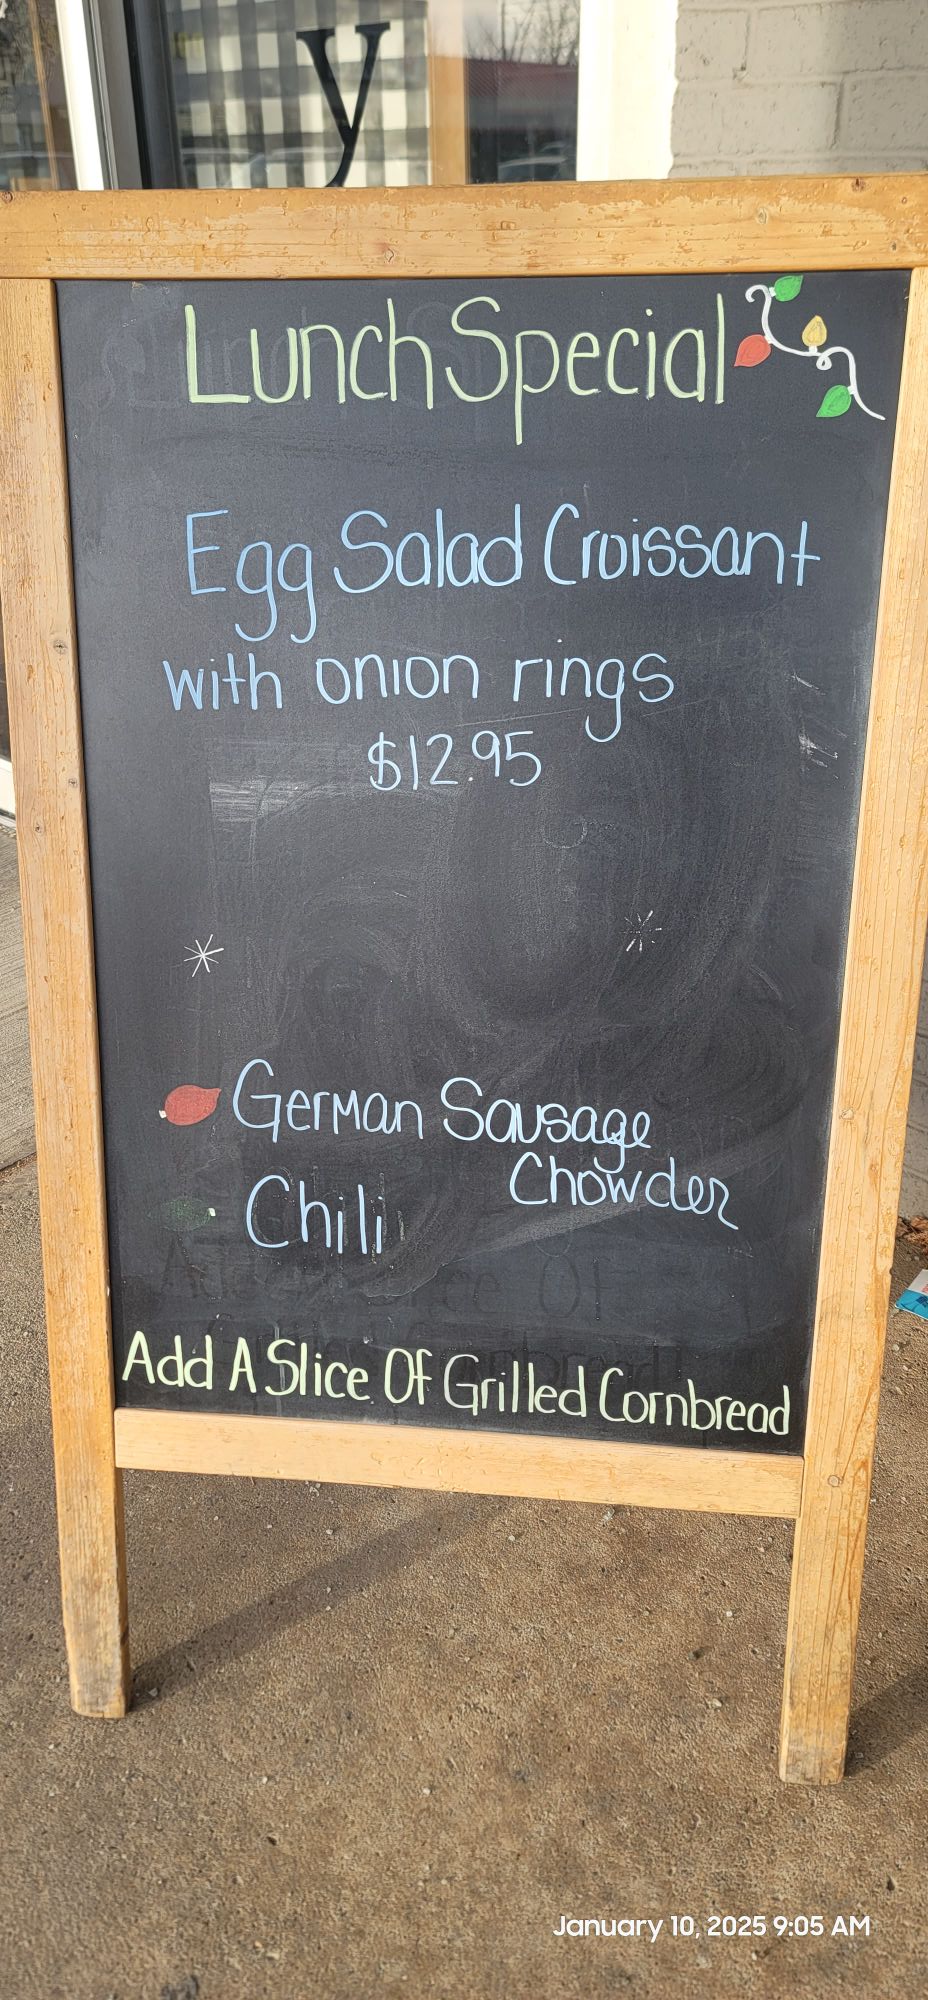 y
Lunch Special
Egg Salad Croissant
with onion rings
$12.95
German Sausage
Chowder
Chili
Add A Slice Of Grilled Cornbread
January 10, 2025 9:05 AM